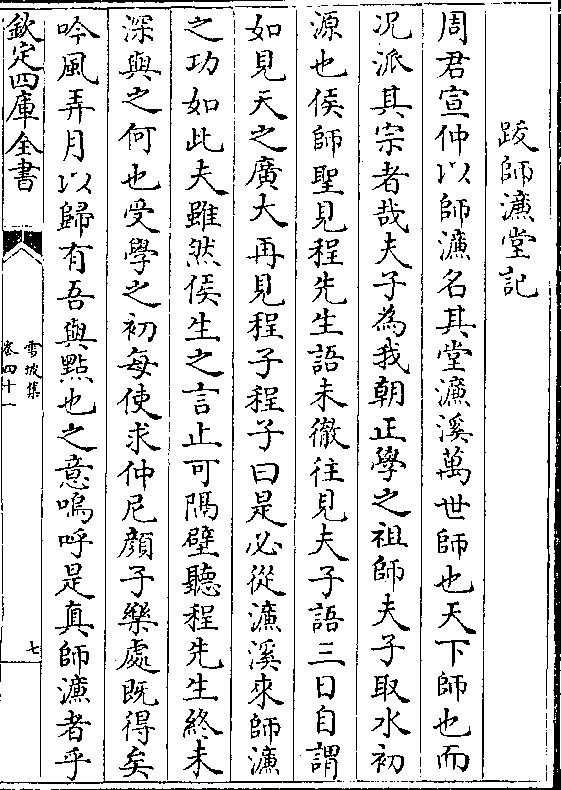 跋師濂堂記
周君宣仲以師濂名其堂濂溪萬世師也天下師也而
况派其宗者哉夫子為我朝正學之祖師夫子取水初
源也侯師聖見程先生語未徹往見夫子語三日自謂
如見天之廣大再見程子程子曰是必從濂溪來師濂
之功如此夫雖然侯生之言止可隔壁聽程先生終未
深與之何也受學之初每使求仲尼顔子樂處既得矣
吟風弄月以歸有吾與點也之意嗚呼是真師濂者乎
欽定四庫全書
雪坡集
卷四十一
七